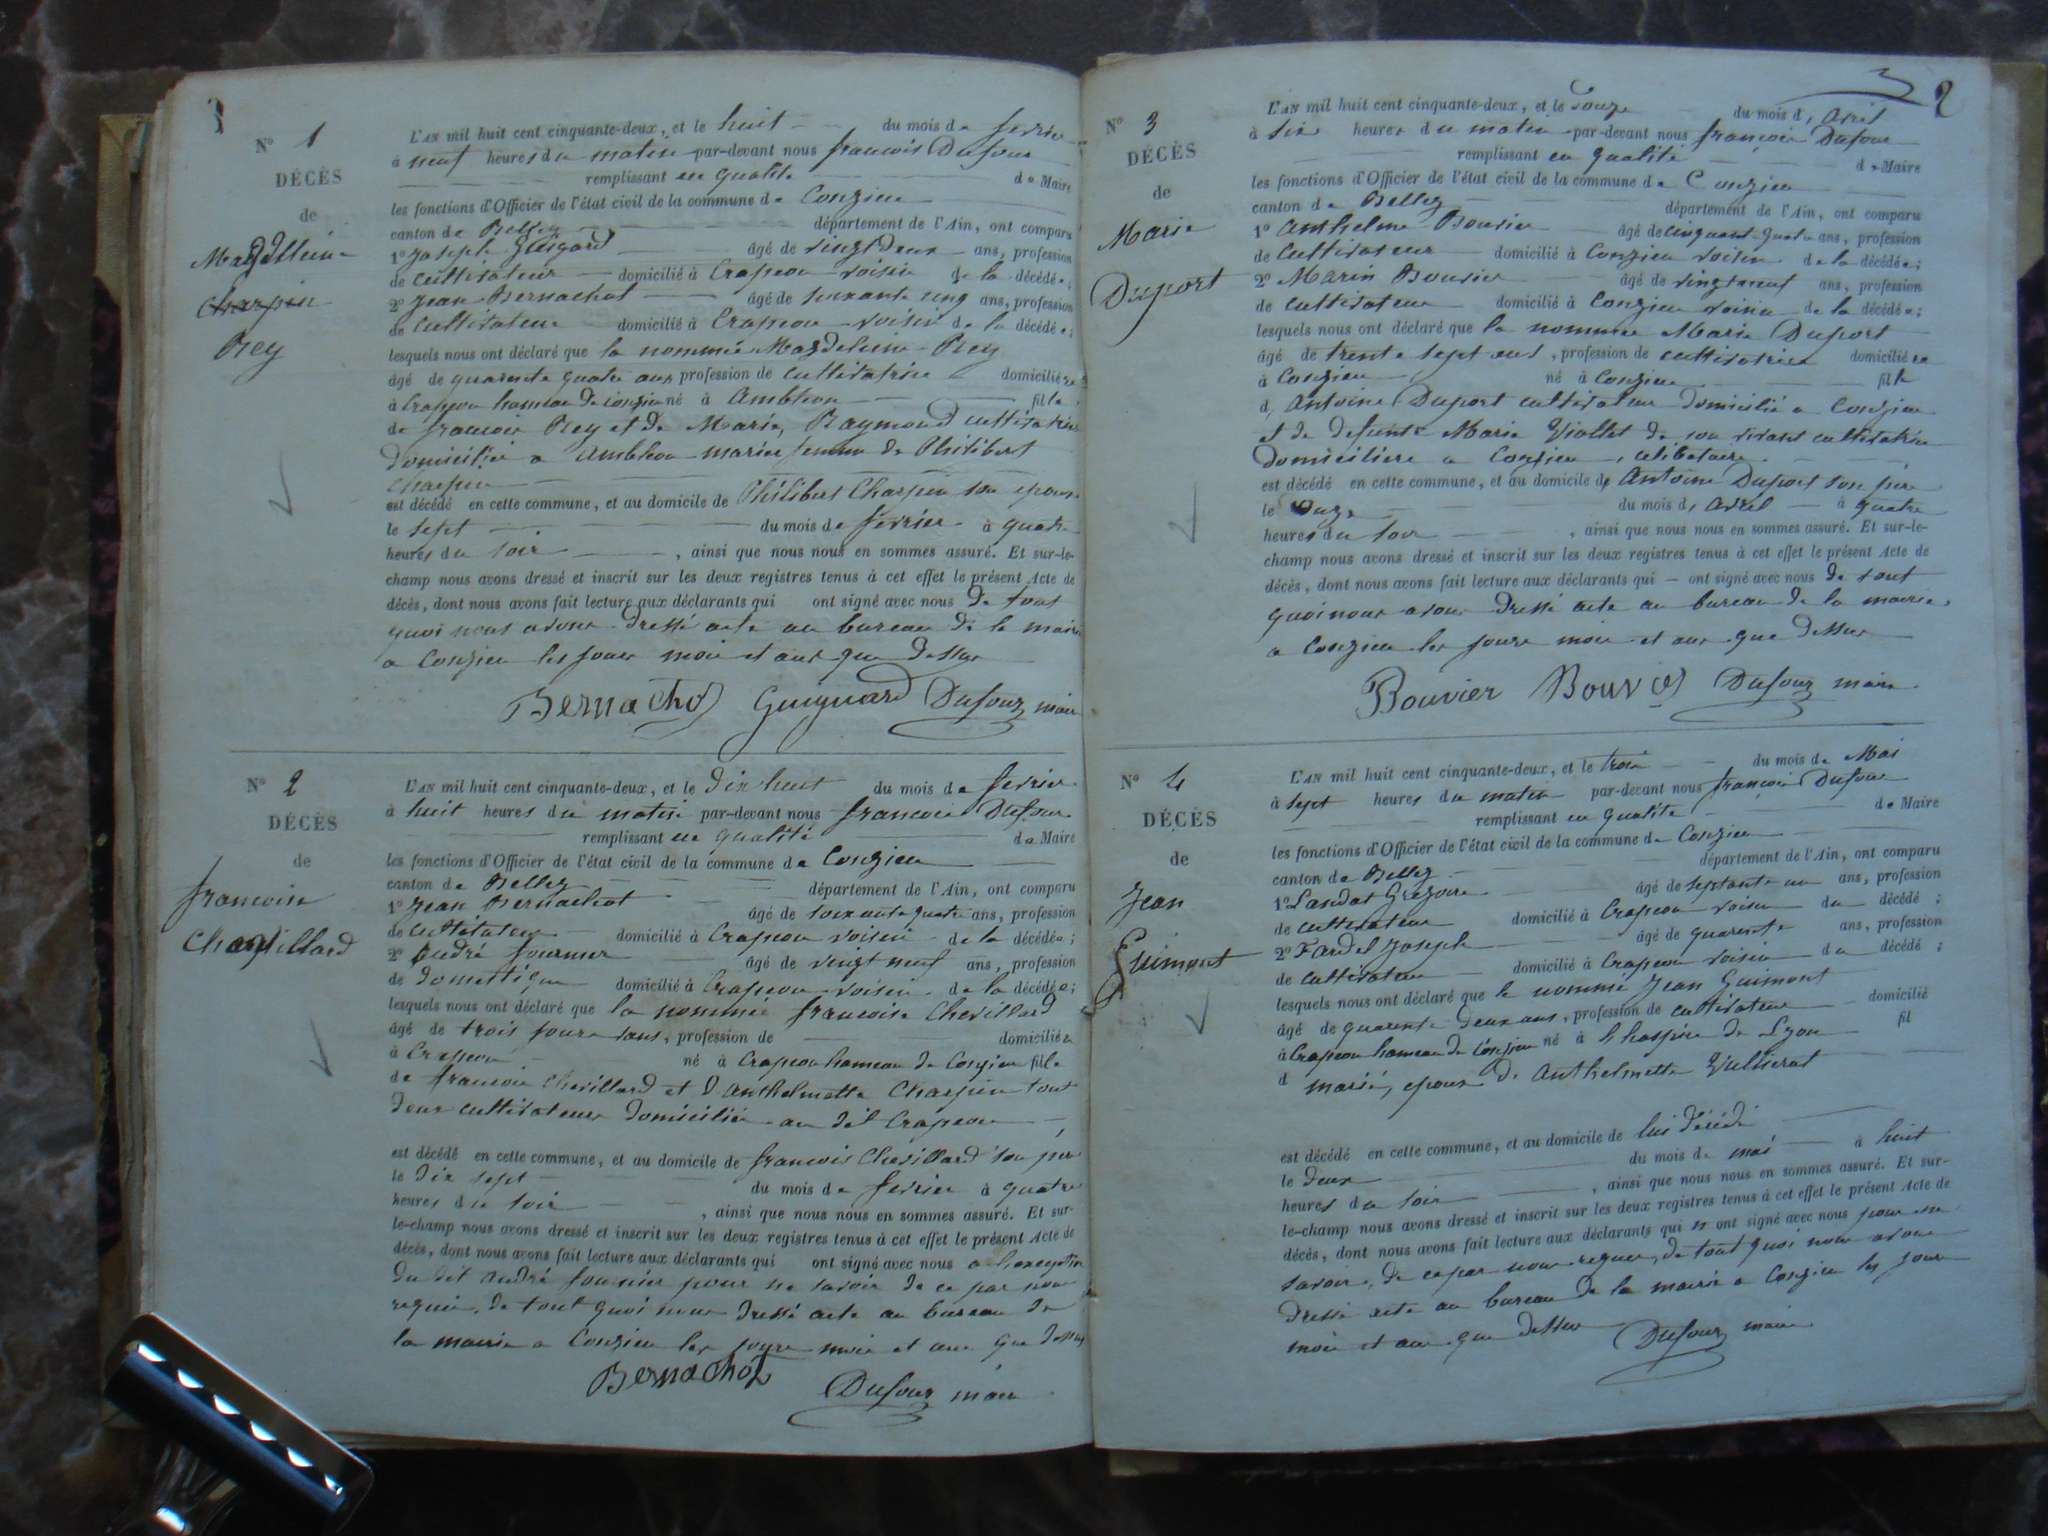 N° 1
DÉCÈS
de
Magdelleine
Charpin
Rey
L'AN mil huit cent cinquante-deux, et le huit du mois de fevrier
à neuf heures du matin par-devant nous françois Dufour
remplissant en qualité de Maire
les fonctions d'Officier de l'état civil de la commune de Conzieu
canton de Belley département de l'Ain, ont comparu
1° Joseph Guigard âgé de vingt deux ans, profession
de cultivateur domicilié à Crapeou voisin de la décédée;
2° Jean Bernachot âgé de soixante cinq ans, profession
de cultivateur domicilié à Crapeou voisin de la décédée;
lesquels nous ont déclaré que la nommée Magdeleine Rey
âgé de quarente quatre ans profession de cultivatrice domiciliée
à Crapeou hameau de conzieu né à Ambleon fille
de francois Rey et de Marie Raymond cultivatrice
domicilié a Ambleon mariée femme de Philibert
Charpin
est décédé en cette commune, et au domicile de Philibert Charpin son epoux
le sept du mois de fevrier à quatre
heures du soir , ainsi que nous nous en sommes assuré. Et sur-le-
champ nous avons dressé et inscrit sur les deux registres tenus à cet effet le présent Acte de
décès, dont nous avons fait lecture aux déclarants qui ont signé avec nous de tout
quoi nous avons dressé acte au bureau de la mairie
a Conzieu les jour mois et an que dessus
Bernachot Guiguard Dufour maire
N° 2
DÉCÈS
de
francoise
Chevillard
L'AN mil huit cent cinquante-deux, et le dix huit du mois de fevrier
à huit heures du matin par-devant nous francois Dufour
remplissant en qualité de Maire
les fonctions d'Officier de l'état civil de la commune de Conzieu
canton de Belley département de l'Ain, ont comparu
1° Jean Bernachot âgé de soixante quatre ans, profession
de cultivateur domicilié à Crapeou voisin de la décédée;
2° André fournier âgé de vingt neuf ans, profession
de domestique domicilié à Crapeou voisin de la décédée;
lesquels nous ont déclaré que la nommée francoise Chevillard
âgé de trois jours , profession de domiciliée
à Crapeou né à Crapeou hameau de Conzieu fille
de francois Chevillard et d'Anthelmette Charpin tout
deux cultivateurs domicilié au dit Crapeou
est décédé en cette commune, et au domicile de francois Chevillard son père
le dix sept du mois de fevrier à quatre
heures du soir , ainsi que nous nous en sommes assuré. Et sur-
le-champ nous avons dressé et inscrit sur les deux registres tenus à cet effet le présent Acte de
décès, dont nous avons fait lecture aux déclarants qui ont signé avec nous a l'exception
du dit André fournier pour ne savoir de ce par nous
requis, de tout quoi nous dressé acte au bureau de
la mairie a Conzieu les jour mois et an que dessus
Bernachot Dufour maire
2
N° 3
DÉCÈS
de
Marie
Duport
L'AN mil huit cent cinquante-deux, et le douze du mois d'avril
à six heures du matin par-devant nous françois Dufour
remplissant en qualité de Maire
les fonctions d'Officier de l'état civil de la commune de Conzieu
canton de Belley département de l'Ain, ont comparu
1° Anthelme Bouvier âgé de cinquante quatre ans, profession
de Cultivateur domicilié à Conzieu voisin de la décédée;
2° Marin Bouvier âgé de vingt neuf ans, profession
de cultivateur domicilié à Conzieu voisin de la décédée;
lesquels nous ont déclaré que la nommée Marie Duport
âgé de trente sept ans, profession de cultivatrice domiciliée
à Conzieu né à Conzieu fille
d'Antoine Duport cultivateur domicilié a Conzieu
et de defunte Marie Viollet de son vivant cultivatrice
domiciliere a Conzieu, celibataire
est décédé en cette commune, et au domicile d'Antoine Duport son père
le onze du mois d'avril à quatre
heures du soir , ainsi que nous nous en sommes assuré. Et sur-le-
champ nous avons dressé et inscrit sur les deux registres tenus à cet effet le présent Acte de
décès, dont nous avons fait lecture aux déclarants qui ont signé avec nous de tout
quoi nous avons dressé acte au bureau de la mairie
a Conzieu les jours mois et an que dessus
Bouvier Bouvier Dufour maire
N° 4
DÉCÈS
de
Jean
Guimont
L'AN mil huit cent cinquante-deux, et le trois du mois de Mai
à sept heures du matin par-devant nous françois Dufour
remplissant en qualité de Maire
les fonctions d'Officier de l'état civil de la commune de Conzieu
canton de Belley département de l'Ain, ont comparu
1° Landot Gregoire âgé de septante un ans, profession
de cultivateur domicilié à Crapeou voisin du décédé ;
2° Fardel Joseph âgé de quarente ans, profession
de cultivateur domicilié à Crapeou voisin du décédé ;
lesquels nous ont déclaré que le nommé Jean Guimont
âgé de quarente deux ans, profession de cultivateur domicilié
à Crapeou hameau de Conzieu né à l'hospice de Lyon fil
d marié, epoux d'Anthelmette Vullierot
est décédé en cette commune, et au domicile de lui décédé
le deux du mois de mai à huit
heures du soir , ainsi que nous nous en sommes assuré. Et sur-
le-champ nous avons dressé et inscrit sur les deux registres tenus à cet effet le présent Acte de
décès, dont nous avons fait lecture aux déclarants qui n'ont signé avec nous pour ne
savoir, de ce par nous requis, de tout quoi nous avons
dressé acte au bureau de la mairie a Conzieu les jour
mois et an que dessus Dufour maire